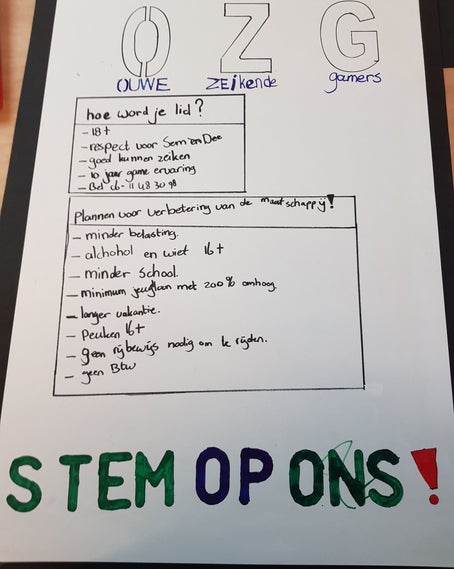 O Z G
OUWE ZEikende gamers
hoe word je lid?
- 18+
- respect voor Sem en Dee
- goed kunnen zeiken
- 10 jaar game ervaring
- Bel 06-11 48 30 98
Plannen voor verbetering van de maatschappij!
- minder belasting.
- alchohol en wiet 16+
- minder school.
- minimum jeugloon met 200% omhoog.
- langer vakantie.
- Peuken 16+
- geen rijbewijs nodig om te rijden.
- geen Btw
STEM OP ONS!